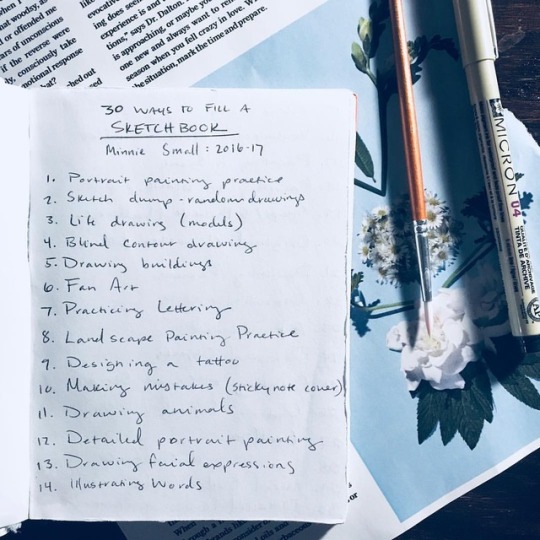 when I
that woodsy, as
l or offended
ars of unconscious
if the reverse were
y, consciously take
motional response
what?
evocative
ing, does
experience is
tions," says Dr. Dalton.
is approaching, or maybe you
one new and always want to
season when you fell crazy in love. W
the situation, mark the time and prepare.
30 WAYS TO FILL A
SKETCHBOOK
Minnie Small: 2016-17
1. Portrait painting practice
2. Sketch dump - random drawings
3. Life drawing (models)
4. Blind contour drawing
5. Drawing buildings
6. Fan Art
7. Practicing Lettering
8. Landscape Painting Practice
9. Designing a tattoo
10. Making mistakes (sticky note cover)
11. Drawing animals
12. Detailed portrait painting
13. Drawing facial expressions
14. Illustrating Words
MICRON 04
QUALITÉ D'ARCHIVAGE
TINTA DE ARCHIVE